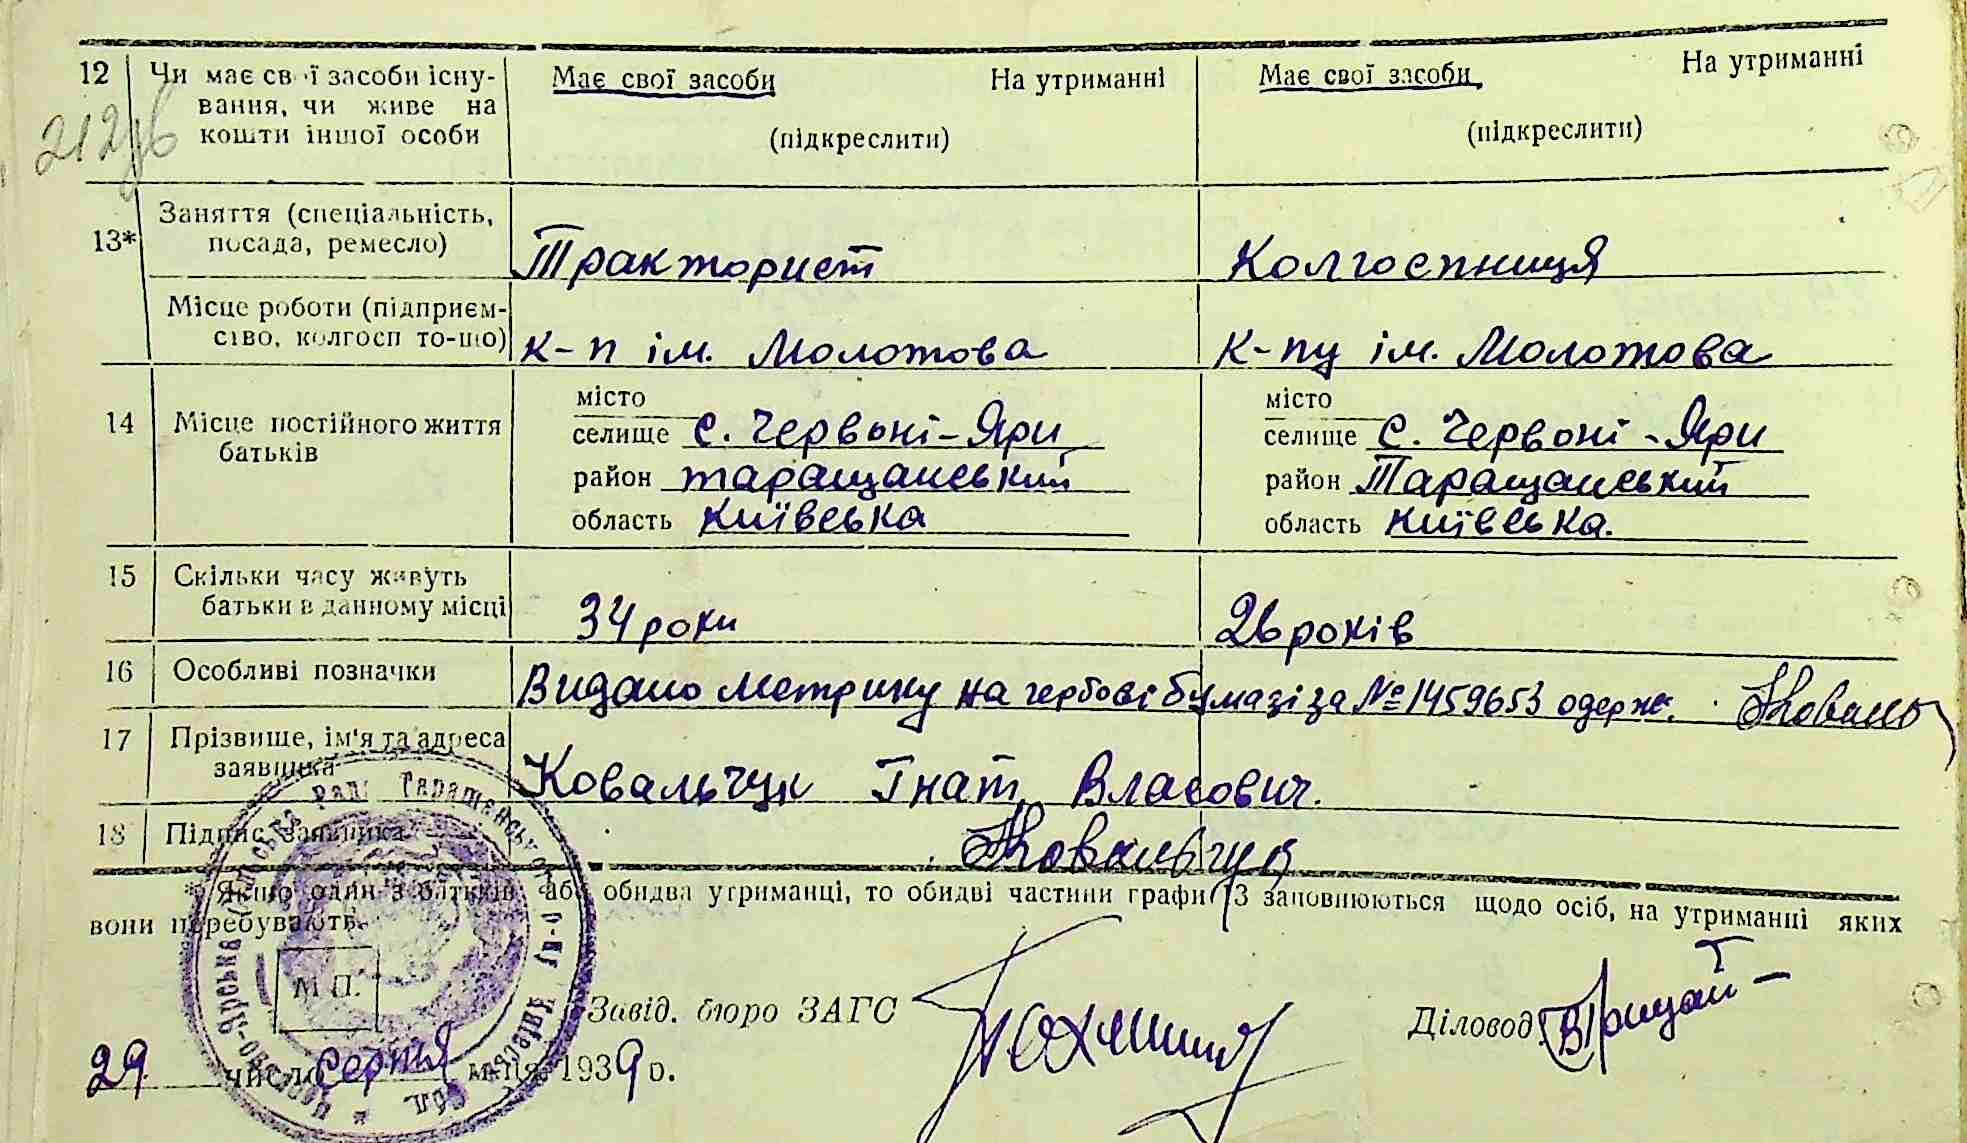 12 Чи має свої засоби існу- Має свої засоби На утриманні Має свої засоби На утриманні
вання, чи живе на
кошти іншої особи (підкреслити) (підкреслити)
13* Заняття (спеціальність,
посада, ремесло) Тракторист Колгоспниця
Місце роботи (підприєм-
ство, колгосп то-що) к-п ім. Молотова к-пу ім. Молотова
місто місто
14 Місце постійного життя селище с. Червоні-Яри селище с. Червоні-Яри
батьків
район таращанський район Таращанський
область київська область київська.
15 Скільки часу живуть
батьки в данному місці 34 роки 26 років
16 Особливі позначки Видано метрику на гербові бумазі за № 1459653 одерж.
17 Прізвище, ім'я та адреса
заявника Ковальчук Гнат Власович.
18 Підпис заявника Ковальчук
* Якщо один з батьків або обидва утриманці, то обидві частини графи 13 заповнюються щодо осіб, на утриманні яких
вони перебувають.
М.П.
Завід. бюро ЗАГС Діловод
29 число серпня м-ця 1939 р.